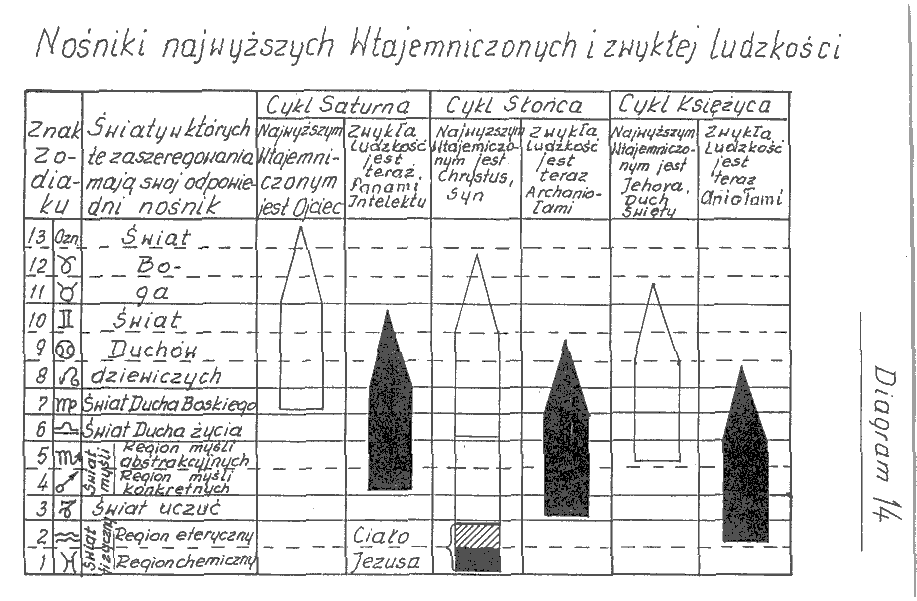 Nośniki najwyższych Wtajemniczonych i zwykłej ludzkości
Znak
Zo-
dia-
ku
Światy w których
te zaszeregowania
mają swój odpowie-
dni nośnik
Cykl Saturna
Cykl Słońca
Cykl Księżyca
Najwyższym
Wtajemni-
czonym
jest Ojciec
Zwykła
ludzkość
jest
teraz
Panami
Intelektu
Najwyższym
Wtajemniczo-
nym jest
Chrystus,
Syn
Zwykła
ludzkość
jest
teraz
Archanio-
łami
Najwyższym
Wtajemniczo-
nym jest
Jehova,
Duch
Święty
Zwykła
ludzkość
jest
teraz
Aniołami
13 Ozn. Świat
12 ♈ Bo-
11 ♉ ga
10 ♊ Świat
9 ♋ Duchów
8 ♌ dziewiczych
7 ♍ Świat Ducha Boskiego
6 ♎ Świat Ducha życia
Świat myśli
5 ♏ Region myśli
abstrakcyjnych
4 ♐ Region myśli
konkretnych
3 ♑ Świat uczuć
Świat fizyczny
2 ♒ Region eteryczny
1 ♓ Region chemiczny
Ciało
Jezusa
Diagram 14